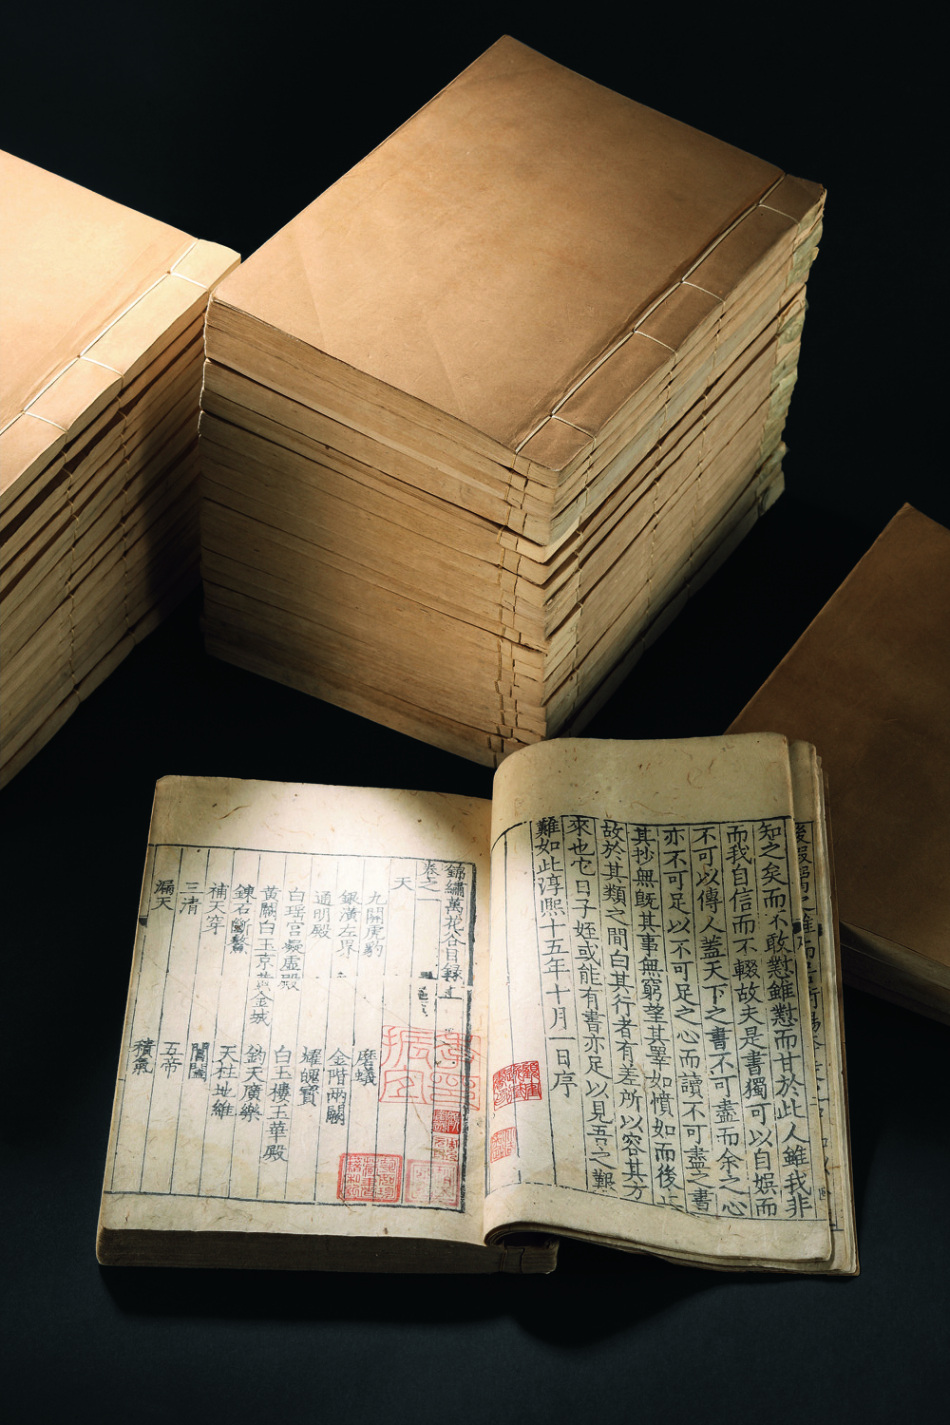 知之矣而不敢懟雖懟而甘於此人雖我非
而我自信而不輟故夫是書獨可以自娛而
不可以傳人蓋天下之書不可盡而余之心
亦不可足以不可足之心而讀不可盡之書
其抄無既其事無窮望其睪如憤如而後
故於其類之間白其行者有差所以容其方
來也它日子姪或能有書亦足以見吾之艱
難如此淳熙十五年十月一日序
錦繡萬花谷目録
卷之一
天
九關虎豹 磨蟻
銀潢左界 金階兩闕
通明殿 燿魄寶
白瑶宮凝虛殿 白玉樓玉華殿
黃闕白玉京黃金城 鈞天廣樂
鍊石斷鰲 天柱地維
補天穿 閶闔
三清 五帝
漏天 積氣